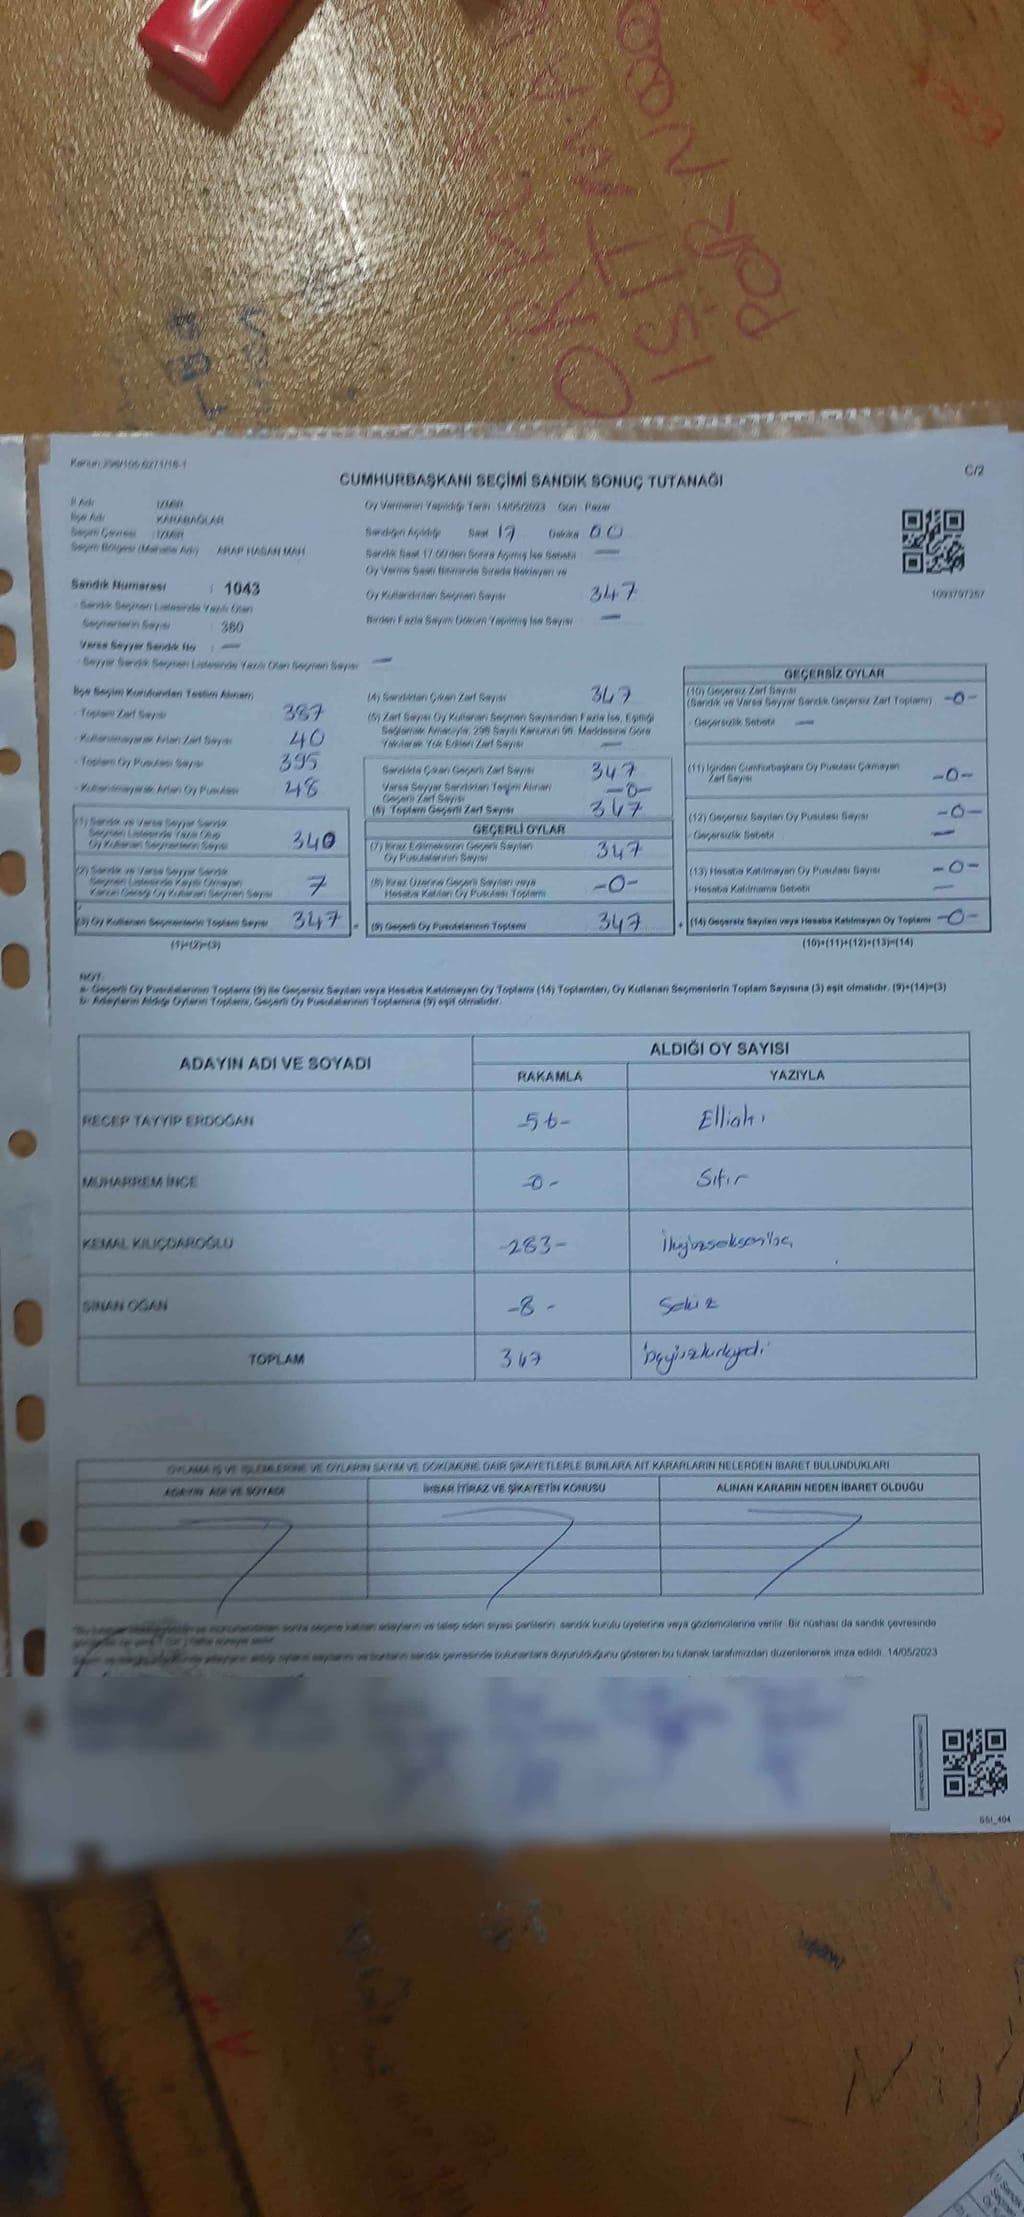 Kanun:298/105 6271/18-1
C/2
CUMHURBAŞKANI SEÇİMİ SANDIK SONUÇ TUTANAĞI
İl Adı : İZMİR
İlçe Adı : KARABAĞLAR
Seçim Çevresi : İZMİR
Seçim Bölgesi (Mahalle Adı) : ARAP HASAN MAH.
Oy Vermenin Yapıldığı Tarih : 14/05/2023 Gün : Pazar
Sandığın Açıldığı Saat 17 Dakika 00
Sandık Saat 17:00'den Sonra Açılmış İse Sebebi —
Oy Verme Saati Bitiminde Sırada Bekleyen ve
Oy Kullandırılan Seçmen Sayısı 347
Birden Fazla Sayım Döküm Yapılmış İse Sayısı —
1093797257
Sandık Numarası : 1043
- Sandık Seçmen Listesinde Yazılı Olan
Seçmenlerin Sayısı : 380
Varsa Seyyar Sandık No : —
- Seyyar Sandık Seçmen Listesinde Yazılı Olan Seçmen Sayısı —
İlçe Seçim Kurulundan Teslim Alınan;
- Toplam Zarf Sayısı 387
- Kullanılmayarak Artan Zarf Sayısı 40
- Toplam Oy Pusulası Sayısı 395
- Kullanılmayarak Artan Oy Pusulası 48
(1) Sandık ve Varsa Seyyar Sandık
Seçmen Listesinde Yazılı Olup
Oy Kullanan Seçmenlerin Sayısı 340
(2) Sandık ve Varsa Seyyar Sandık
Seçmen Listesinde Kayıtlı Olmayan
Kanun Gereği Oy Kullanan Seçmen Sayısı 7
(3) Oy Kullanan Seçmenlerin Toplam Sayısı 347
(1)+(2)=(3)
(4) Sandıktan Çıkan Zarf Sayısı 347
(5) Zarf Sayısı Oy Kullanan Seçmen Sayısından Fazla İse, Eşitliği
Sağlamak Amacıyla, 298 Sayılı Kanunun 98. Maddesine Göre
Yakılarak Yok Edilen Zarf Sayısı —
Sandıkta Çıkan Geçerli Zarf Sayısı 347
Varsa Seyyar Sandıktan Teslim Alınan
Geçerli Zarf Sayısı -0-
(6) Toplam Geçerli Zarf Sayısı 347
GEÇERLİ OYLAR
(7) İtiraz Edilmeksizin Geçerli Sayılan
Oy Pusulalarının Sayısı 347
(8) İtiraz Üzerine Geçerli Sayılan veya
Hesaba Katılan Oy Pusulası Toplamı -0-
(9) Geçerli Oy Pusulalarının Toplamı 347
GEÇERSİZ OYLAR
(10) Geçersiz Zarf Sayısı
(Sandık ve Varsa Seyyar Sandık Geçersiz Zarf Toplamı) -0-
- Geçersizlik Sebebi —
(11) İçinden Cumhurbaşkanı Oy Pusulası Çıkmayan
Zarf Sayısı -0-
(12) Geçersiz Sayılan Oy Pusulası Sayısı -0-
- Geçersizlik Sebebi —
(13) Hesaba Katılmayan Oy Pusulası Sayısı -0-
- Hesaba Katılmama Sebebi —
(14) Geçersiz Sayılan veya Hesaba Katılmayan Oy Toplamı -0-
(10)+(11)+(12)+(13)=(14)
NOT:
a- Geçerli Oy Pusulalarının Toplamı (9) ile Geçersiz Sayılan veya Hesaba Katılmayan Oy Toplamı (14) Toplamları, Oy Kullanan Seçmenlerin Toplam Sayısına (3) eşit olmalıdır. (9)+(14)=(3)
b- Adayların Aldığı Oyların Toplamı, Geçerli Oy Pusulalarının Toplamına (9) eşit olmalıdır.
ADAYIN ADI VE SOYADI
ALDIĞI OY SAYISI
RAKAMLA YAZIYLA
RECEP TAYYİP ERDOĞAN -56- Ellialtı
MUHARREM İNCE -0- Sıfır
KEMAL KILIÇDAROĞLU -283- İkiyüzseksenüç
SİNAN OĞAN -8- Sekiz
TOPLAM 347 üçyüzkırkyedi
OYLAMA İŞ VE İŞLEMLERİNE VE OYLARIN SAYIM VE DÖKÜMÜNE DAİR ŞİKAYETLERLE BUNLARA AİT KARARLARIN NELERDEN İBARET BULUNDUKLARI
ADAYIN ADI VE SOYADI İHBAR İTİRAZ VE ŞİKAYETİN KONUSU ALINAN KARARIN NEDEN İBARET OLDUĞU
sonra seçime katılan adayların ve talep eden siyasi partilerin sandık kurulu üyelerine veya gözlemcilerine verilir. Bir nüshası da sandık çevresinde
adayların aldığı oyların sayılarını ve bunların sandık çevresinde bulunanlara duyurulduğunu gösteren bu tutanak tarafımızdan düzenlenerek imza edildi. 14/05/2023
SSİ_404